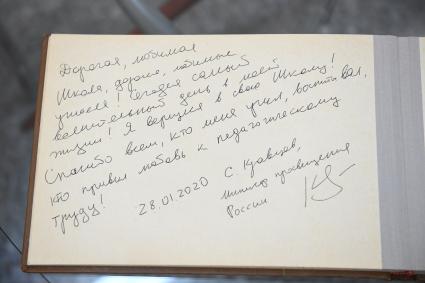 Дорогая, любимая
Школа, дорогие, любимые
учителя! Сегодня самый
волнительный день в моей
жизни! Я вернулся в свою Школу!
Спасибо всем, кто меня учил, воспитывал,
кто привил любовь к педагогическому
труду!
28.01.2020
С. Кравцов,
министр просвещения
России